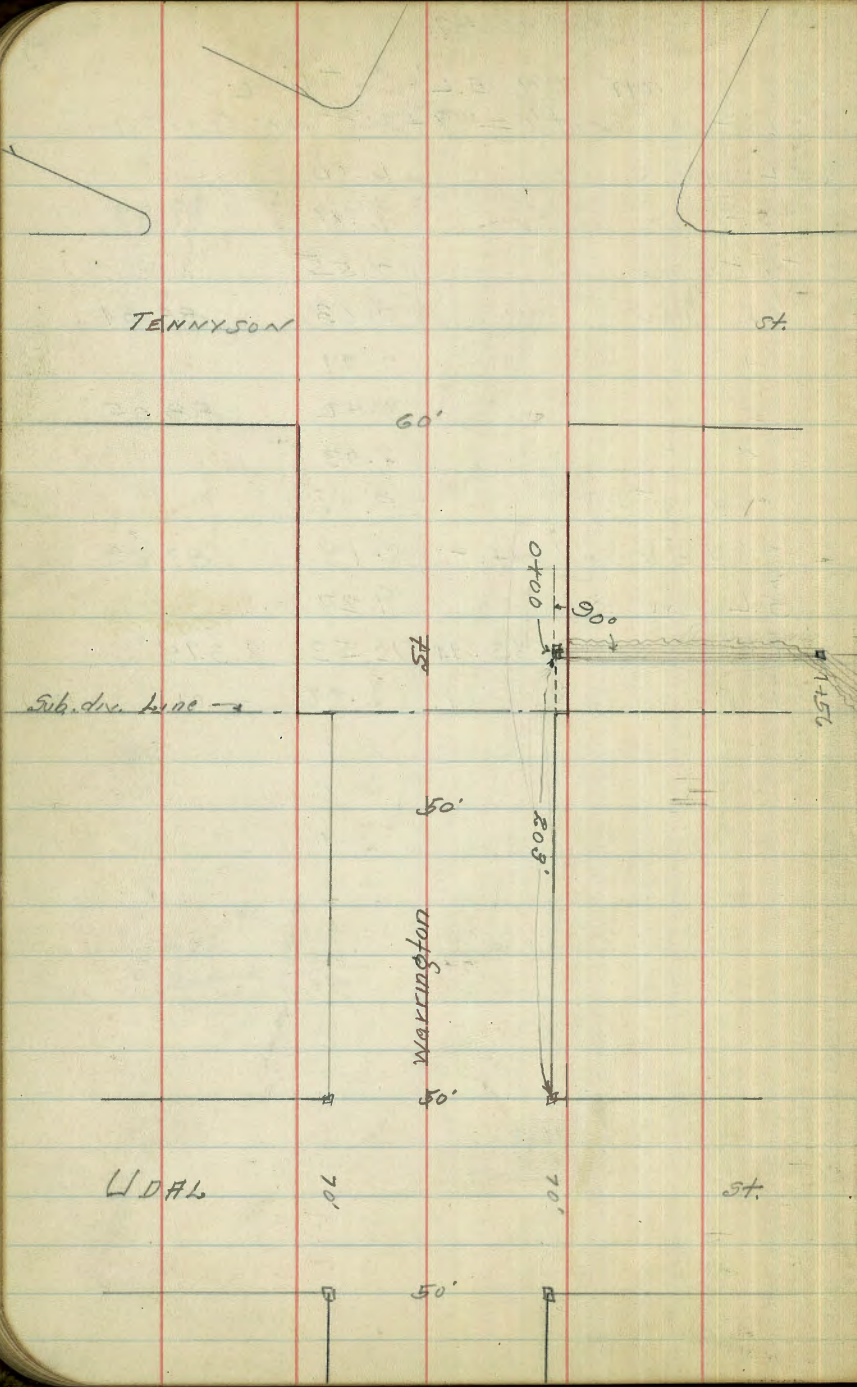 TENNYSON St.
60'
0+00
90°
St
1+56
Sub. div. Line
50'
203'
Warrington
50'
UDAL 70' 70' St.
50'